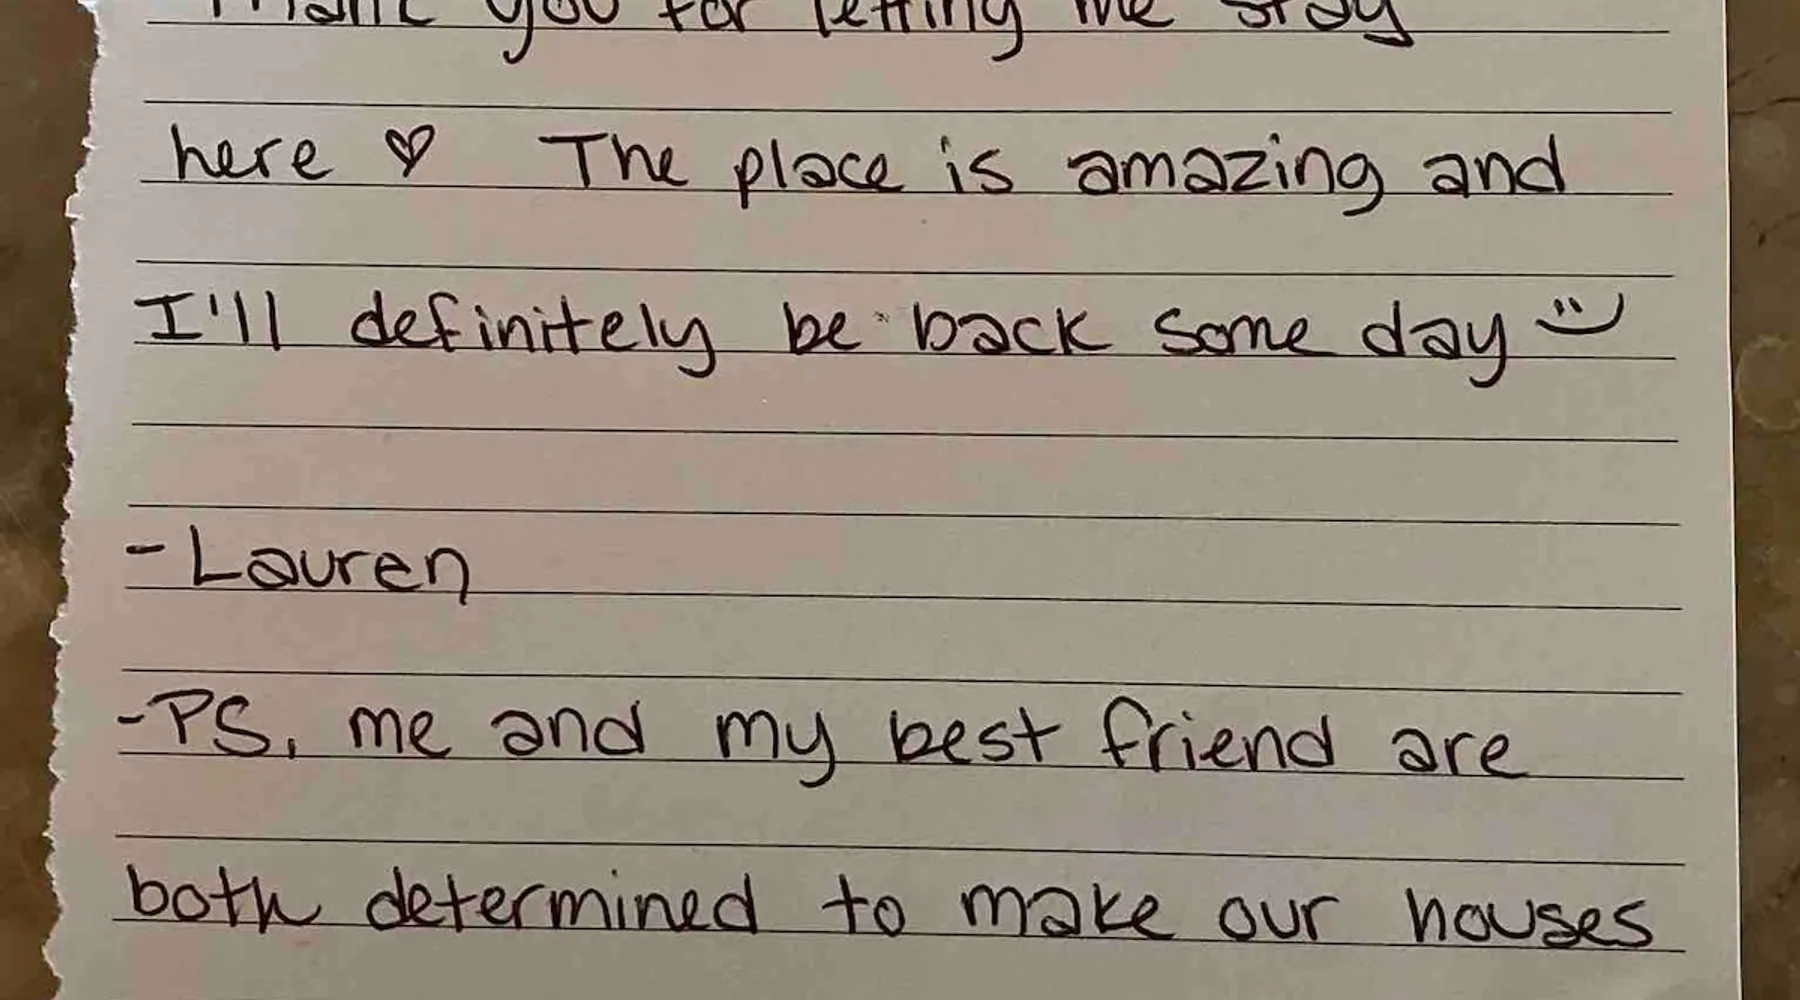 Thank you for letting me stay
here ♡ The place is amazing and
I'll definitely be back some day :)
-Lauren
-PS, me and my best friend are
both determined to make our houses